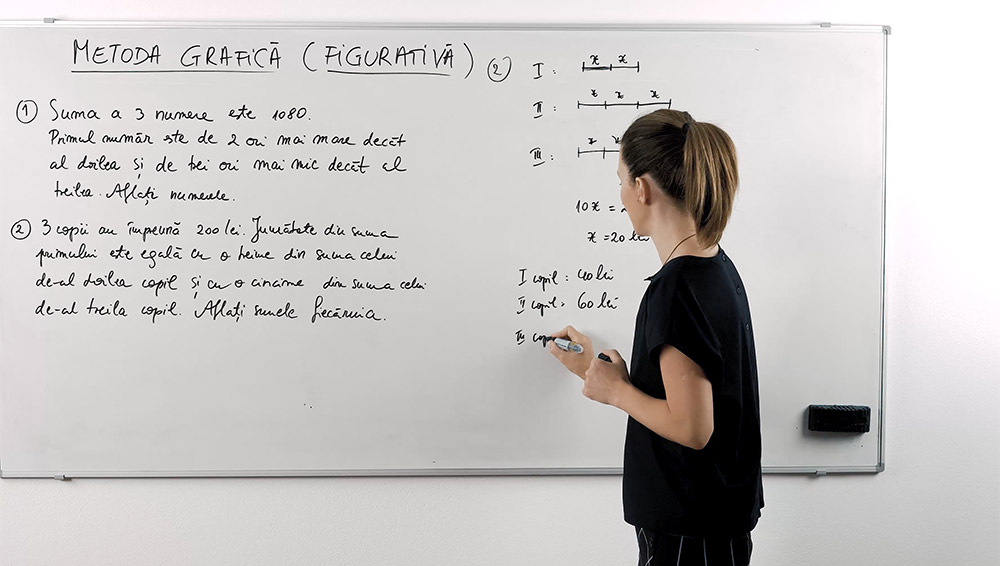 METODA GRAFICĂ (FIGURATIVĂ)
① Suma a 3 numere este 1080.
Primul număr este de 2 ori mai mare decât
al doilea și de trei ori mai mic decât al
treilea. Aflați numerele.
② 3 copii au împreună 200 lei. Jumătate din suma
primului este egală cu o treime din suma celui
de-al doilea copil și cu o cincime din suma celui
de-al treilea copil. Aflați sumele fiecăruia.
②
I : x x
II : x x x
III : x x
10x =
x = 20 lei
I copil : 40 lei
II copil : 60 lei
III cop